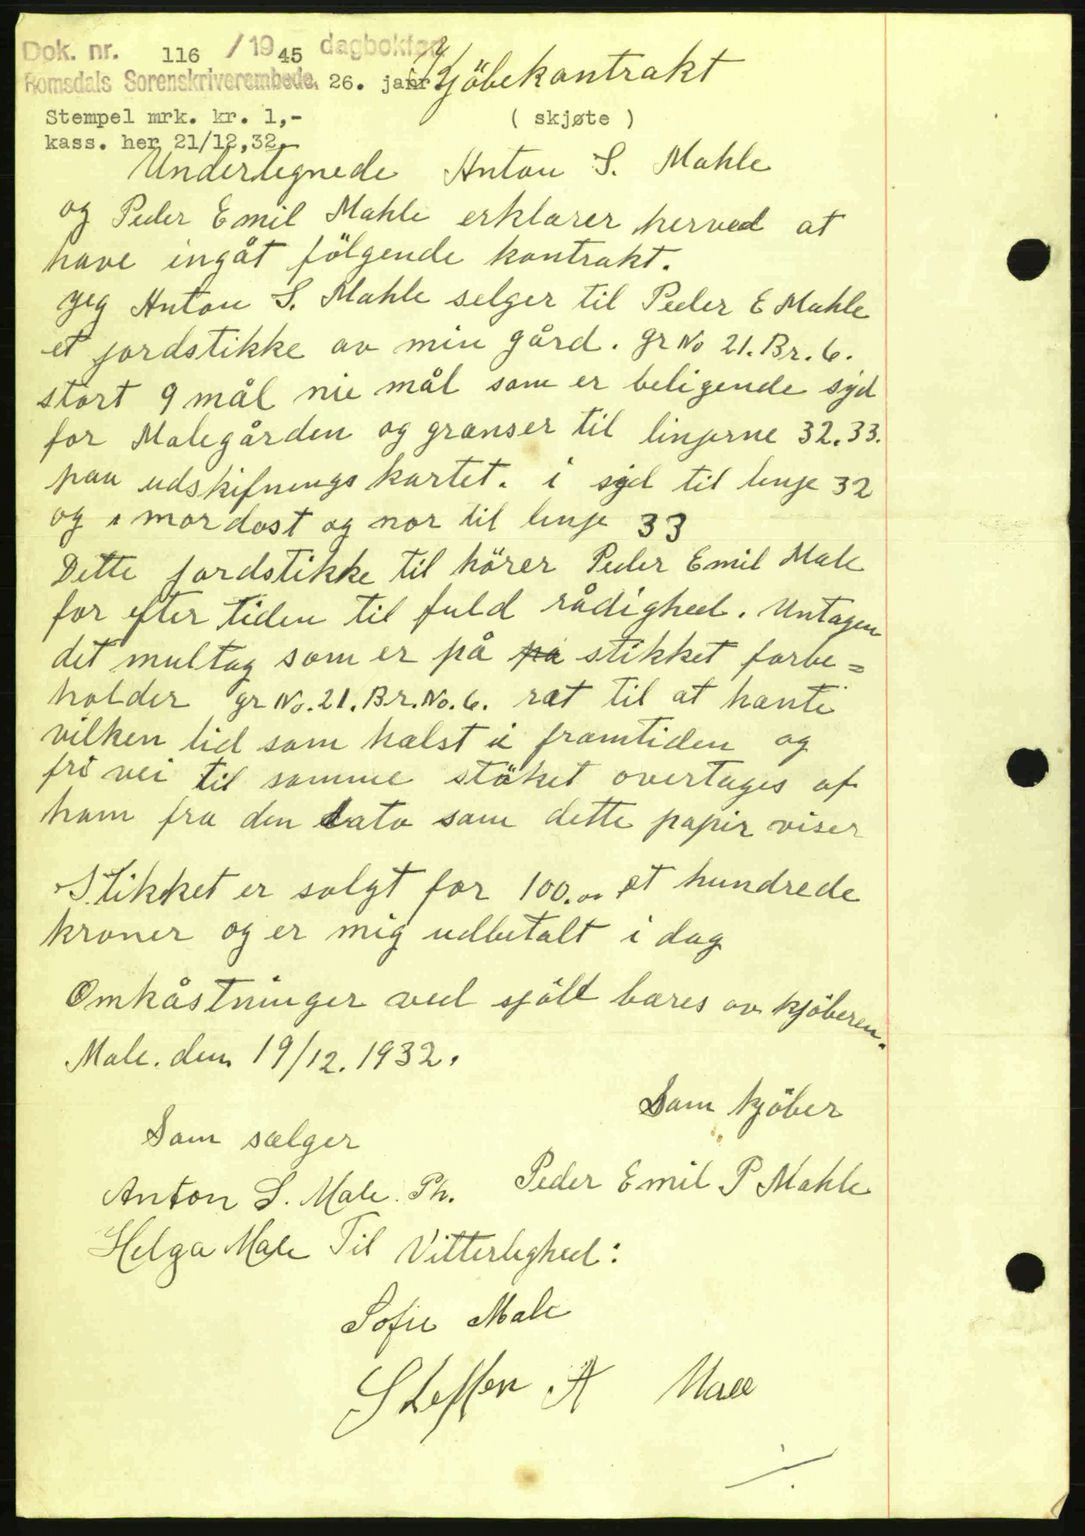 Dok. nr. 116 / 1945 dagbokført
Romsdals Sorenskriverembede, 26. jan.
Kjöbekontrakt
Stempel mrk. kr. 1,-
( skjøte )
kass. her 21/12,32.
Undertegnede Anton S. Mahle
og Peder Emil Mahle erklærer herved at
have ingåt fölgende kontrakt.
jeg Anton S. Mahle selger til Peder E Mahle
et jordstikke av min gård. gr No 21. Br. 6.
stort 9 mål nie mål som er beligende syd
for Malegården og grænser til linjerne 32. 33.
paa udskifnings kartet. i syd til linje 32
og i nordost og nor til linje 33
Dette jordstikke til hörer Peder Emil Male
for efter tiden til fuld rådighed. Untagen
det multag som er på på stikket forbe=
holder gr No. 21. Br. No. 6. ræt til at hante
vilken tid som hælst i framtiden og
fri vei til samme stöket overtages af
ham fra den dato som dette papir viser
Stikket er solgt for 100.00 et hundrede
kroner og er mig udbetalt i dag
Omkåstninger ved sjölt bæres av kjöberen.
Male. den 19/12. 1932.
Som kjöber
Som sælger
Peder Emil P Mahle
Anton S. Male. Ph.
Helga Male Til Vitterlighed:
Sofie Male
Steffen A Male